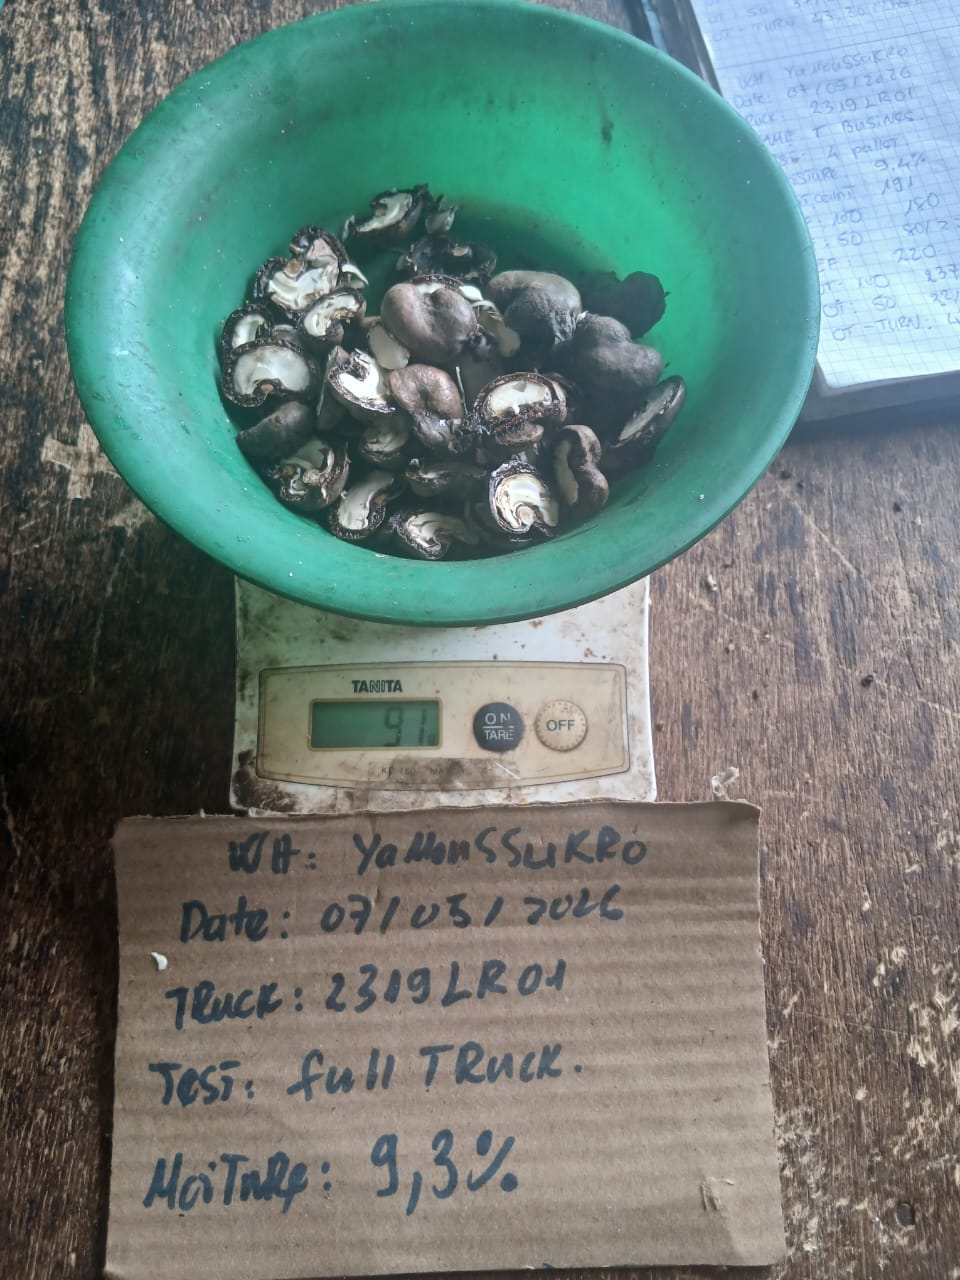 WH YAMOUSSUKRO
Date: 07/05/2026
2319 LR01
T BUSINES
4 pallet
9.4%
191
100 180
50 80/
220
NO 237
OT 50 32/
OT-TURN.
TANITA
91
ON
TARE
OFF
WH: YaMouSSUKRo
Date: 07/05/2026
TRucK: 2319LR01
TesT: full TRucK.
MoiTuRe: 9,3%